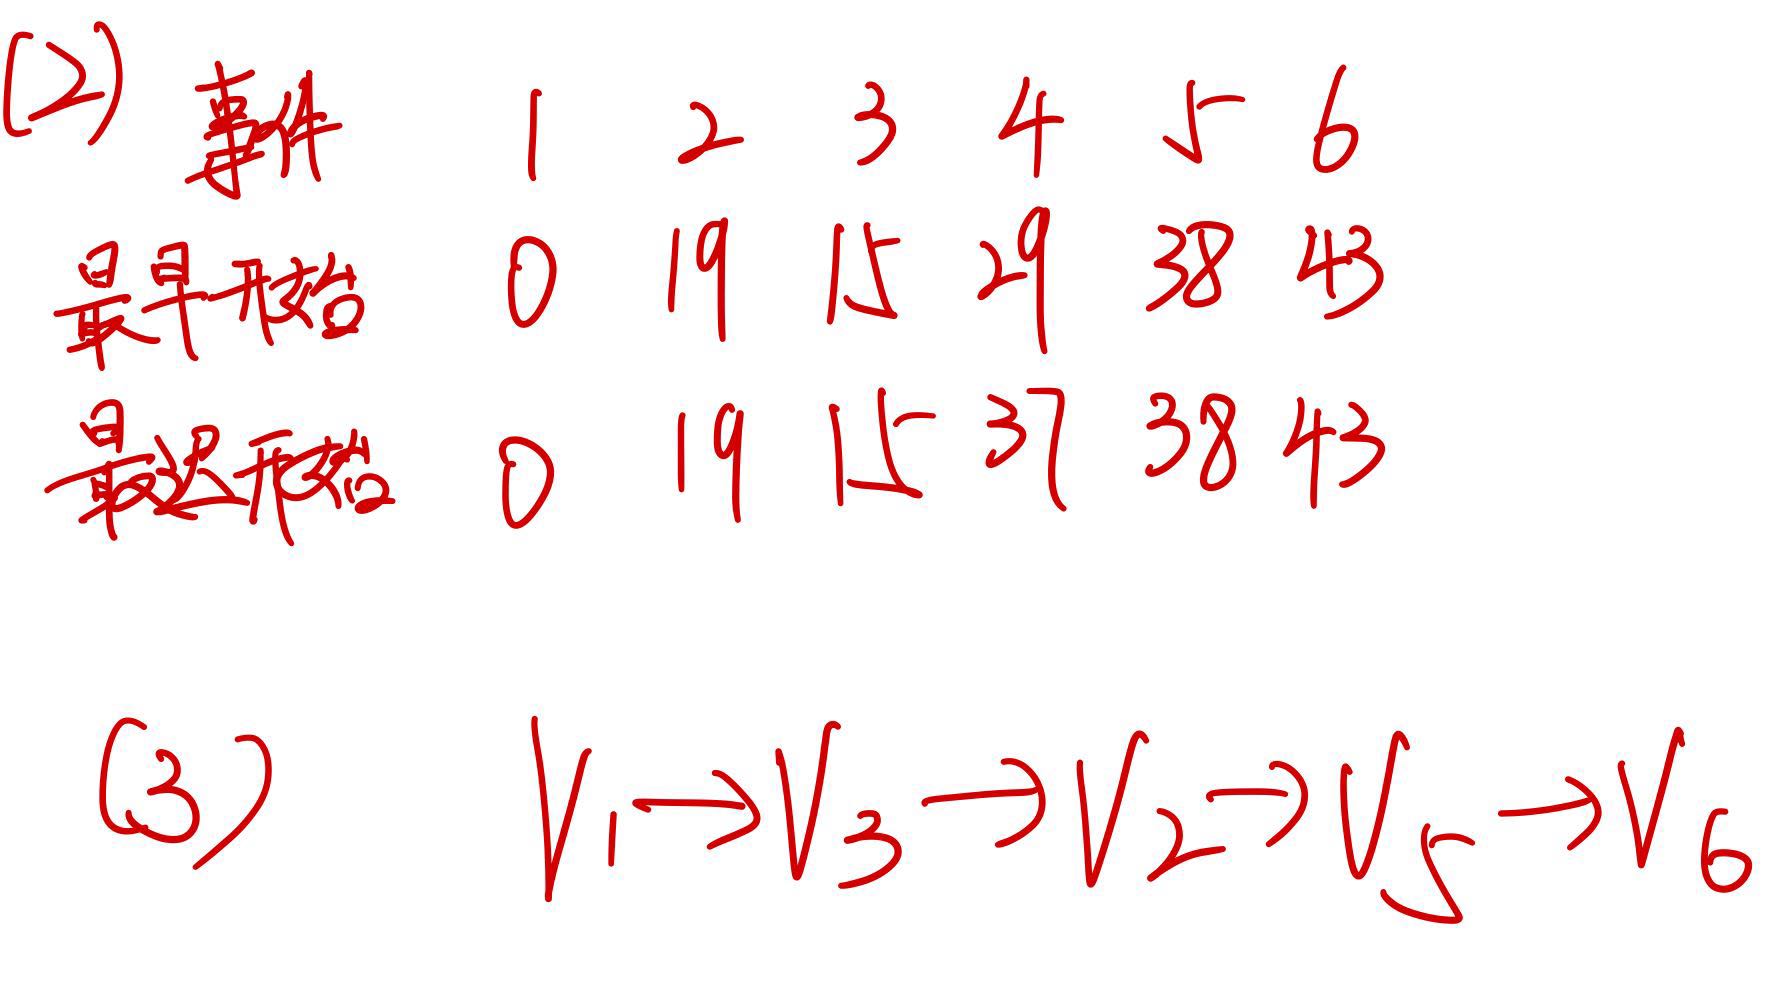 (2) 事件 1 2 3 4 5 6
最早开始 0 19 15 29 38 43
最迟开始 0 19 15 37 38 43
(3) V1→V3→V2→V5→V6